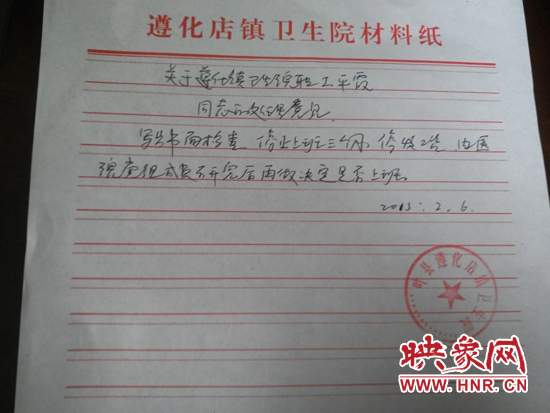 遵化店镇卫生院材料纸
关于遵化镇卫生院职工平霞
同志的处理意见
写出书面检查，停止上班三个月，停发工资，由医
院党组成员召开完后再做决定是否上班。
2013.2.6.
叶县遵化店镇卫生院
映象网
WWW.HNR.CN